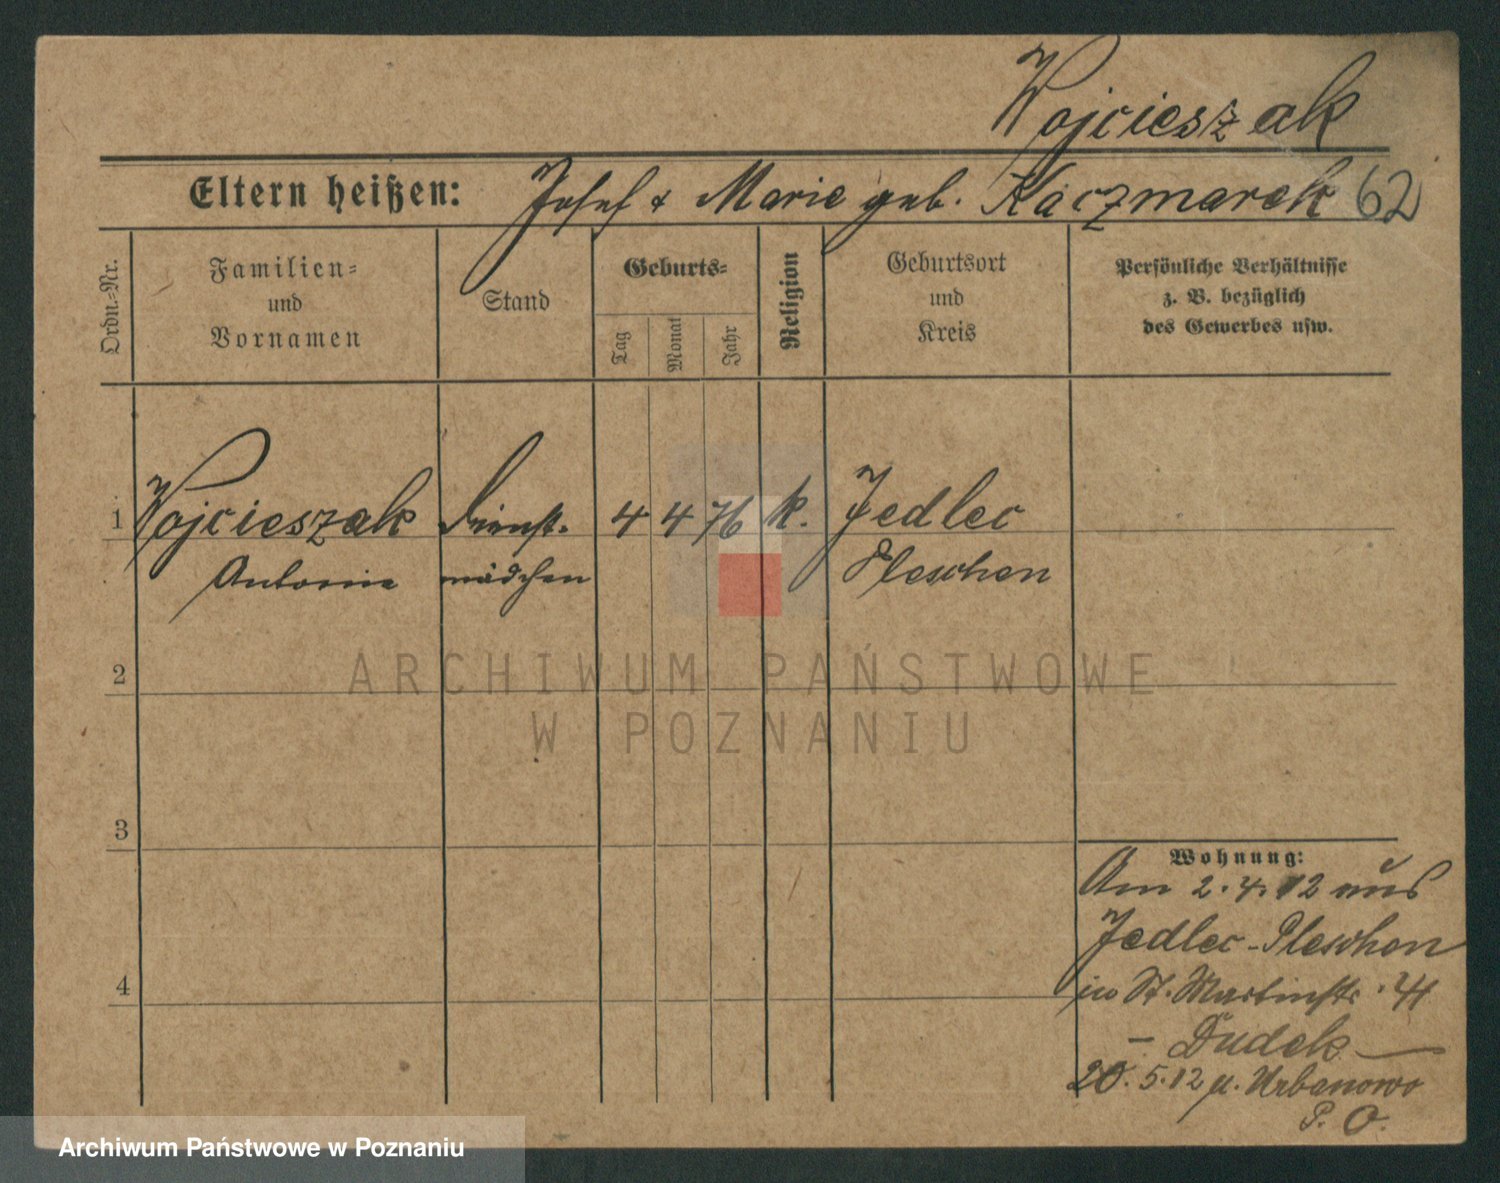 Wojcieszak
Eltern heißen: Josef & Marie geb. Kaczmarek 62
Ordn.=Nr.
Familien=
und
Vornamen
Stand
Geburts=
Tag
Monat
Jahr
Religion
Geburtsort
und
Kreis
Persönliche Verhältnisse
z. B. bezüglich
des Gewerbes usw.
1 Wojcieszak Dienst- 4 4 76 k. Jedlec
Antonie mädchen Pleschen
2
ARCHIWUM PAŃSTWOWE
W POZNANIU
3
Wohnung:
Am 2.4.12 aus
Jedlec-Pleschen
in St. Martinstr.
– Dudek –
20.5.12 n. Urbanowo
P. O.
4
Archiwum Państwowe w Poznaniu